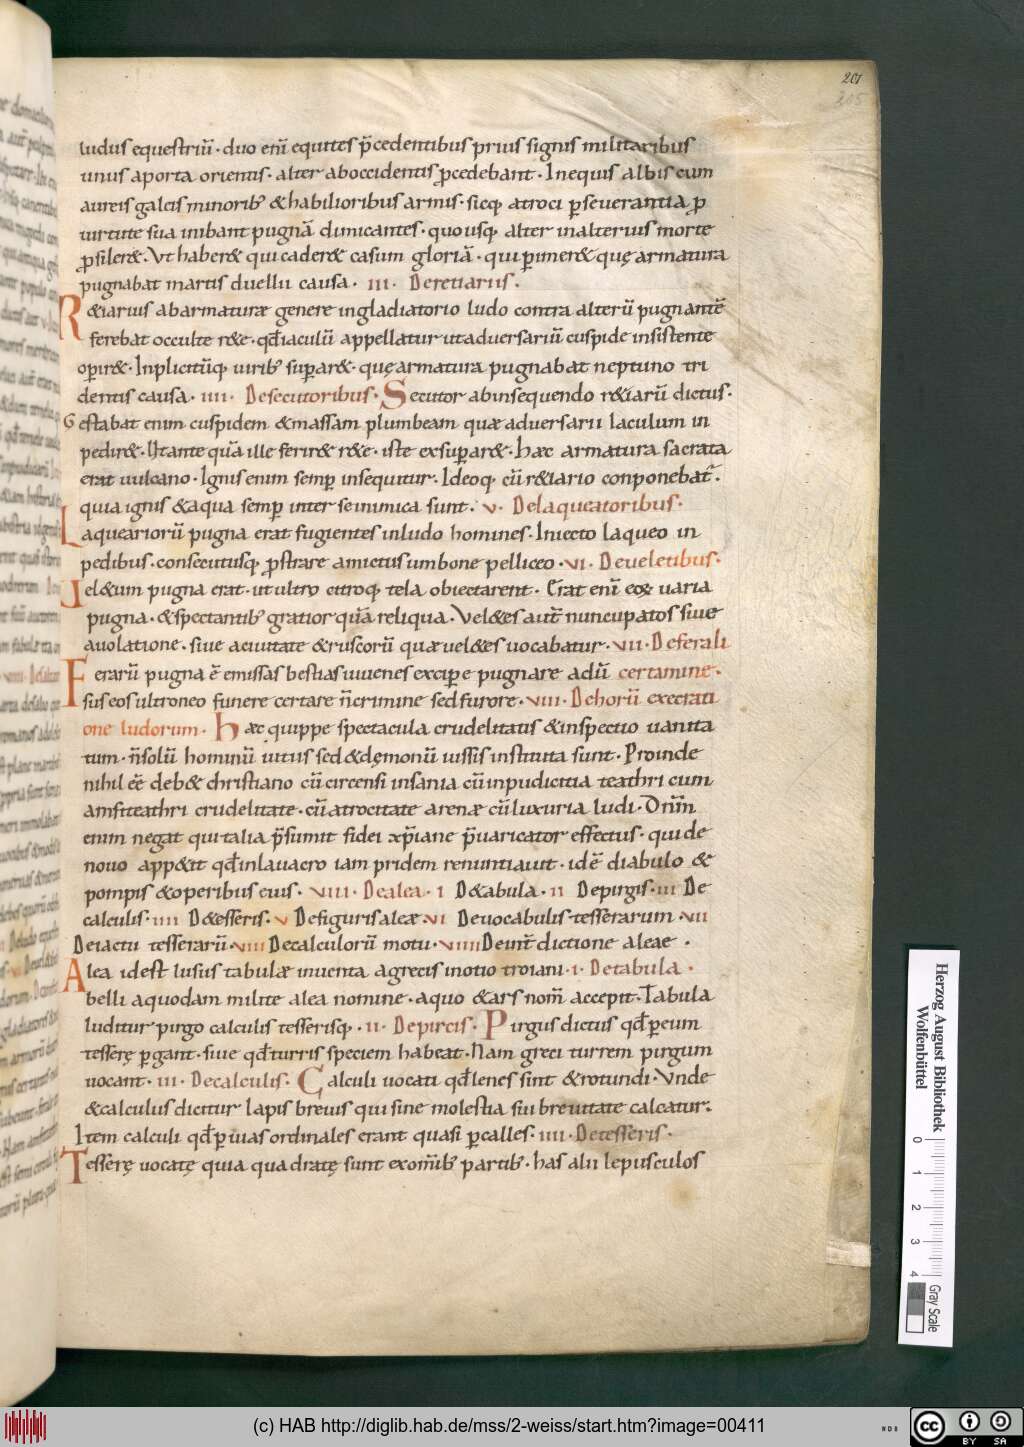 201
205
ludus equestriū · duo eni̅ equites p̅cedentibus prius signis militaribus
unus aporta orientis · alter aboccidentis ꝓcedebant · In equis albis cum
aureis galeis minorib; & habilioribus armis · sicq; atroci ꝑseuerantia ꝓ
uirtute sua inibant pugnā dimicantes · quousq; alter inalterius morte
ꝓsiler& · Vt haber& qui cader& casum gloriā · qui ꝑimer& quę armatura
pugnabat martis duellii causa · III · De retiariis ·
R&iarius abarmaturæ genere ingladiatorio ludo contra alterū pugnantē
ferebat occulte r&e · qd̅ iaculū appellatur utaduersariū cuspide insistente
oꝑir& · Inplicitūq; uirib; suꝑar& · quę armatura pugnabat neptuno tri
dentis causa · IIII · De secutoribus · Secutor abinsequendo r&iarū dictus ·
Gestabat enim cuspidem & massam plumbeam quæ aduersarii Iaculum in
pedir& · Ut ante quā ille ferir& r&e · iste exsuꝑar& · hæc armatura sacrata
erat uulcano · Ignis enim semꝑ insequitur · Ideoq; cū r&iario conponebat̄ ·
quia ignis & aqua semꝑ inter se inimica sunt · V · De laqueatoribus ·
Laqueariorū pugna erat fugientes inludo homines · Iniecto laqueo in
pedibus · consecutusq; ꝓstrare amictus umbone pelliceo · VI · De ueletibus ·
Uel&um pugna erat · ut ultro citroq; tela obiectarent · Erat eni̅ eoꝝ uaria
pugna · & spectantib; gratior quā reliqua · Vel&es aut̄ nuncupatos siue
auolatione · siue aciuitate & ruscorū quæ uel&es uocabatur · VII · De ferali
Ferarū pugna ē emissas bestias iuuenes exciꝑe pugnare adū certamine ·
sus eos ultroneo funere certare n̅ crimine sed furore · VIII · De horū execrati
one ludorum · Hæc quippe spectacula crudelitatis & inspectio uanita
tum · n̅ solū hominū uitiis sed & dęmonū iussis instituta sunt · Proinde
nihil ee̅ deb& christiano cū circensi insania cū inpudicitia teathri cum
amfiteathri crudelitate · cū atrocitate arenæ cū luxuria ludi · Dn̅m
enim negat qui talia p̅sumit fidei xp̅iane p̅uaricator effectus · qui de
nouo app&it qd̅ inlauacro iam pridem renuntiauit · idē diabulo &
pompis & operibus eius · VIIII · De alea · I De tabula · II De pirgis · III De
calculis · IIII D& esseris · V De figuris aleæ · VI De uocabulis tesserarum · VII
De iactu tesserarū · VIII De calculorū motu · VIIII De int̄dictione aleae ·
Alea id est lusus tabulæ inuenta agrecis inotio troiani · I · De tabula ·
belli aquodam milite alea nomine · aquo & ars nom̄ accepit · Tabula
luditur pirgo calculis tesserisq; · II · De pircis · Pirgus dictus qd̅ ꝑeum
tesserę ꝑgant · siue qd̅ turris speciem habeat · Nam greci turrem pirgum
uocant · III · De calculis · Calculi uocati qd̅ lenes sint & rotundi · Vnde
& calculus dicitur lapis breuis qui sine molestia sui breuitate calcatur ·
Item calculi qd̅ ꝑ uias ordinales erant quasi ꝑcalles · IIII · De tesseris ·
Tesserę uocatę quia quadratę sunt exom̅ib; partib; · has alii lepusculos
Herzog August Bibliothek
Wolfenbüttel
0 1 2 3 4
Gray Scale
(c) HAB http://diglib.hab.de/mss/2-weiss/start.htm?image=00411
WDB
cc BY SA